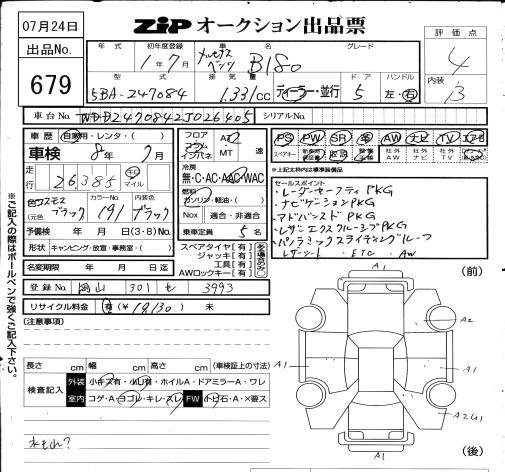 07月24日
ZiP オークション出品票
出品No.
679
年式 初年度登録 車名 グレード
1年7月 メルセデスベンツ B180
型式 排気量 ドア ハンドル
5BA-247084 1.33L cc ディーラー・並行 5 左・右
評価点
4
内装
B
車台No. WDD2470842J026405 シリアルNo.
車歴 自家用・レンタ・( )
車検 8年7月
走行 26385 キロ マイル
色 コスモスブラック カラーNo. 191 内装色 ブラック
(元色
予備検 年 月 日(3・8)No.
形状 キャンピング・放宣・事務室・( )
名変期限 年 月 日迄
登録No. 岡山 301 も 3993
リサイクル料金 有(¥18130) 未
フロア コラム インパネ AT・MT 速
冷房 無・C・AC・AAC・WAC
燃料 ガソリン・軽油・( )
Nox 適合・非適合
乗車定員 5名
スペアタイヤ[有]
ジャッキ[有]
工具[有]
AWロックキー[有]
ある場合のみ○
PS PW SR 革 AW ナビ TV エアB
スペアキー 取説 社外AW 社外ナビ 社外TV
※上記太枠内は標準装備品
セールスポイント
・レーダーセーフティPKG
・ナビゲーションPKG
・アドバンスドPKG
・レザーエクスクルーシブPKG
・パノラミックスライディングルーフ
・レザーシート ・ETC ・AW
※ご記入の際はボールペンで強くご記入下さい。
(注意事項)
長さ cm 幅 cm 高さ cm (車検証上の寸法)
検査記入 外装 小キズ有・小凹有・ホイルA・ドアミラーA・ワレ
室内 コゲ・A・ヨゴレ・キレ・スレ FW トビ石・A・×要ス
(前)
A1
A2
A1
A1
A2U1
A1
(後)